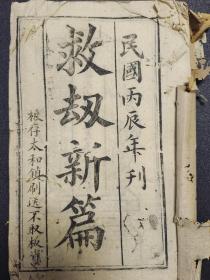 民國丙辰年刊
救刼新篇
板存太和鎮刷送不取板資